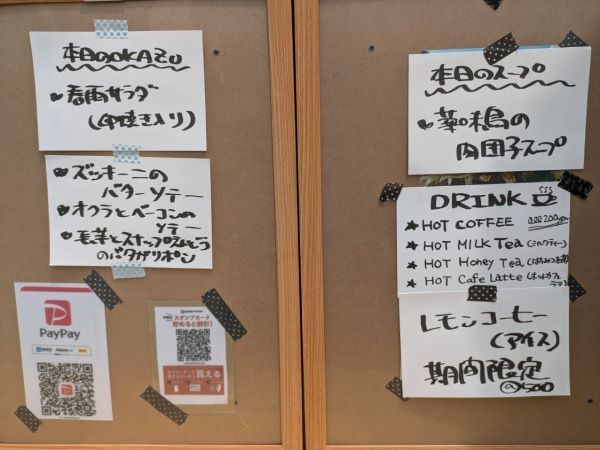 本日のOKAZU
春雨サラダ
(卵焼き入り)
ズッキーニの
バターソテー
オクラとベーコンの
ソテー
長芋とスナップえんどう
のバタガリポン
PayPay
スタンプカード
貯めると割引!
買える
本日のスープ
薬味鶏の
肉団子スープ
DRINK
HOT COFFEE all 200yen
HOT MILK Tea (ミルクティー)
HOT Honey Tea
HOT Cafe Latte (ホットカフェ
ラテ)
レモンコーヒー
(アイス)
期間限定
500